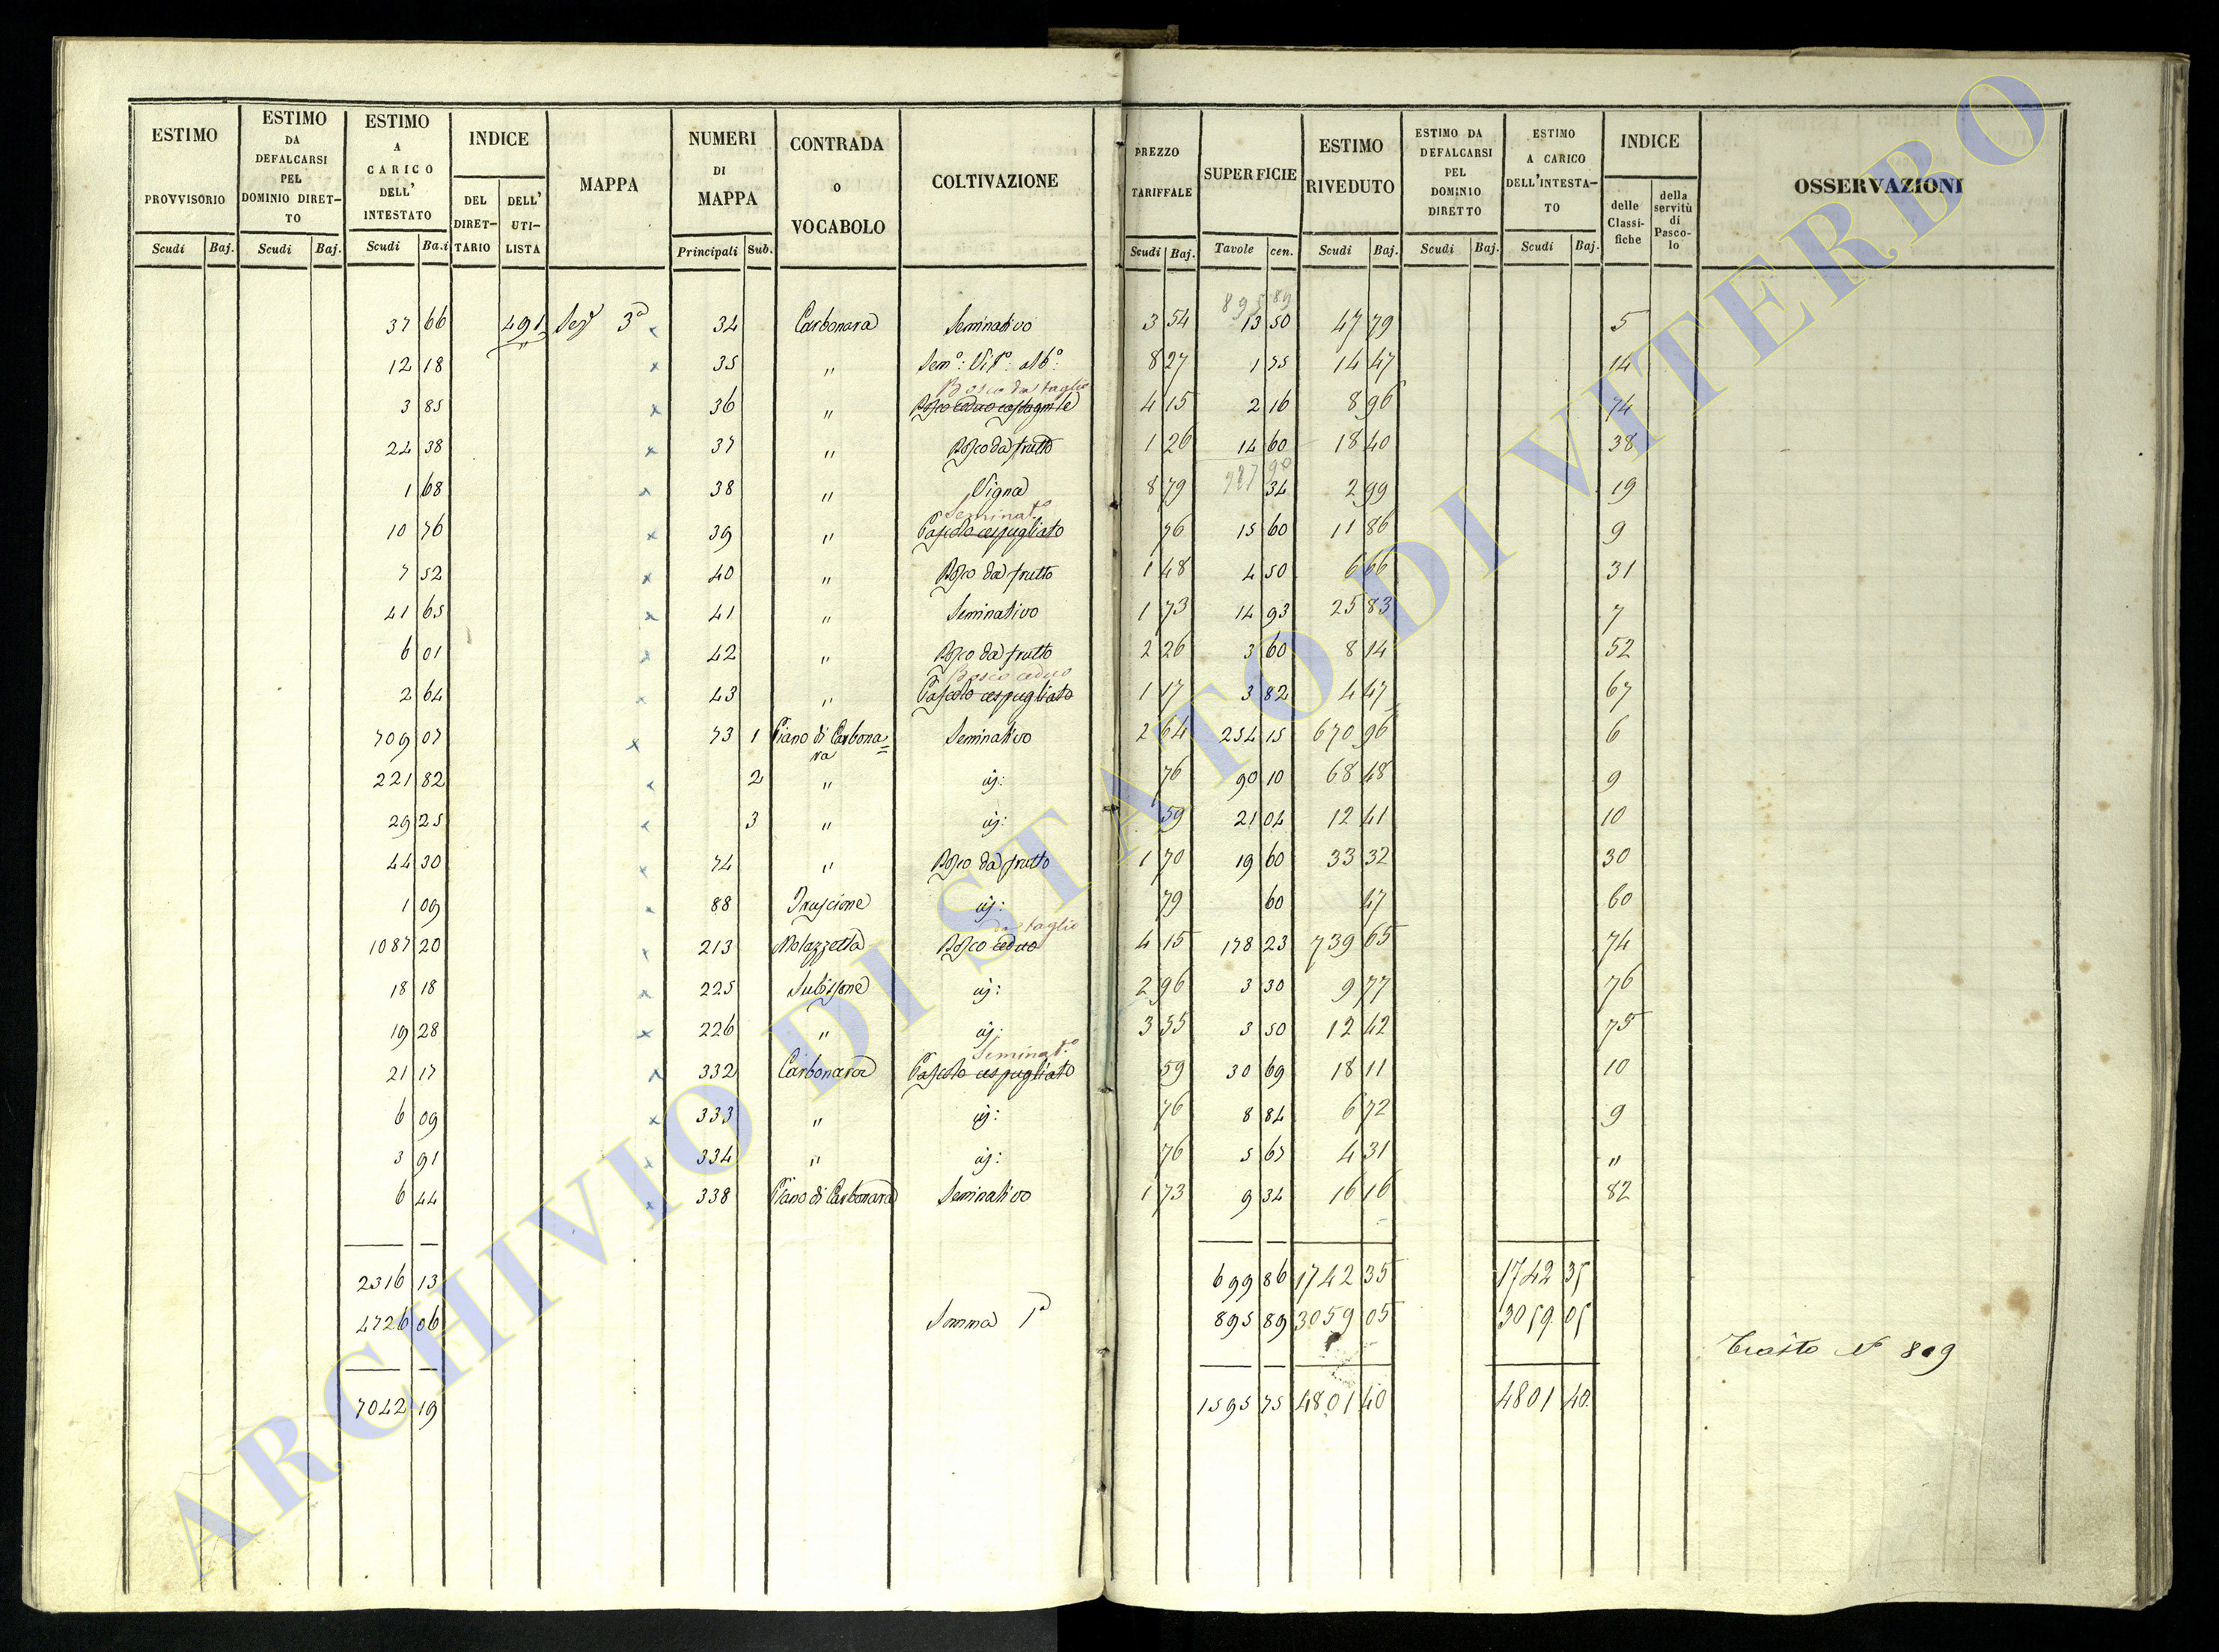 ESTIMO PROVVISORIO Scudi Baj.
ESTIMO DA DEFALCARSI PEL DOMINIO DIRETTO Scudi Baj.
ESTIMO A CARICO DELL' INTESTATO Scudi Ba.i
INDICE DEL DIRETTARIO DELL' UTILISTA
MAPPA
NUMERI DI MAPPA Principali Sub.
CONTRADA O VOCABOLO
COLTIVAZIONE
PREZZO TARIFFALE Scudi Baj.
SUPERFICIE Tavole cen.
ESTIMO RIVEDUTO Scudi Baj.
ESTIMO DA DEFALCARSI PEL DOMINIO DIRETTO Scudi Baj.
ESTIMO A CARICO DELL'INTESTATO Scudi Baj.
INDICE delle Classifiche della servitù di Pascolo
OSSERVAZIONI
895 89
37 66 491 Sez. 3a 34 Carbonara Seminativo 3 54 13 50 47 79 5
12 18 35 " Semo: Vito: albo: 8 27 1 75 14 47 14
Bosco da taglio
3 85 36 " Bosco ceduo castagnile 4 15 2 16 8 96 74
24 38 37 " Bosco da frutto 1 26 14 60 18 40 38
1 68 38 " Vigna 8 79 34 2 99 19
Seminato
10 76 39 " Pascolo cespugliato 76 15 60 11 86 9
7 52 40 " Bosco da frutto 1 48 4 50 6 66 31
41 65 41 " Seminativo 1 73 14 93 25 83 7
6 01 42 " Bosco da frutto 2 26 3 60 8 14 52
Bosco ceduo
2 64 43 " Pascolo cespugliato 1 17 3 82 4 47 67
709 07 73 1 Piano di Carbona=ra Seminativo 2 64 254 15 670 96 6
221 82 2 " id: 76 90 10 68 48 9
29 25 3 " id: 59 21 04 12 41 10
44 30 74 " Bosco da frutto 1 70 19 60 33 32 30
1 09 88 id: 79 60 47 60
da taglio
1087 20 213 Molazzetta Bosco ceduo 4 15 178 23 739 65 74
18 18 225 Subissone id: 2 96 3 30 9 77 76
19 28 226 " id: 3 55 3 50 12 42 75
Seminato
21 17 332 Carbonara Pascolo cespugliato 59 30 69 18 11 10
6 09 333 " id: 76 8 84 6 72 9
3 91 334 " id: 76 5 67 4 31 "
6 44 338 Piano di Carbonara Seminativo 1 73 9 34 16 16 82
2316 13 699 86 1742 35 1742 35
4726 06 Somma 1a 895 89 3059 05 3059 05
7042 19 1595 75 4801 40 4801 40
N° 809
ARCHIVIO DI STATO DI VITERBO